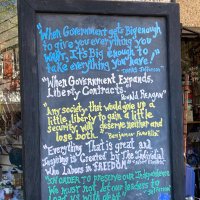 "When Government gets Big enough
to give you everything you
want, It's Big enough to
take everything you have!"
Thomas Jefferson
"When Government Expands,
Liberty Contracts."
Ronald Reagan
"Any society that would give up a
little liberty to gain a little
security will deserve neither and
lose both." Benjamin Franklin
"Everything That is great and
Inspiring is Created by The Individual
Who Labors in Freedom"
"IN ORDER TO PRESERVE our Independence
We must not let our leaders
us with debt" Jefferson